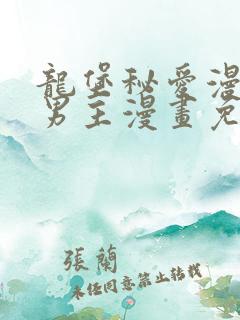 龍堡秘愛漫
男主漫畫免
張蘭
未經同意禁止轉載